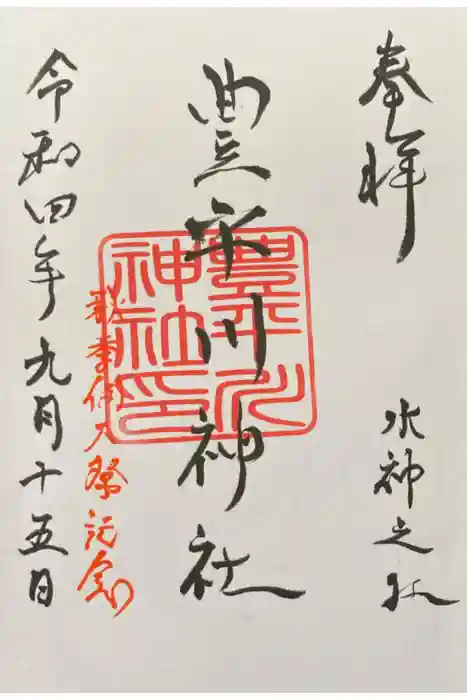 奉拝
水神之社
豊平川神社
豊平川神社印
秋季例大祭記念
令和四年九月十五日